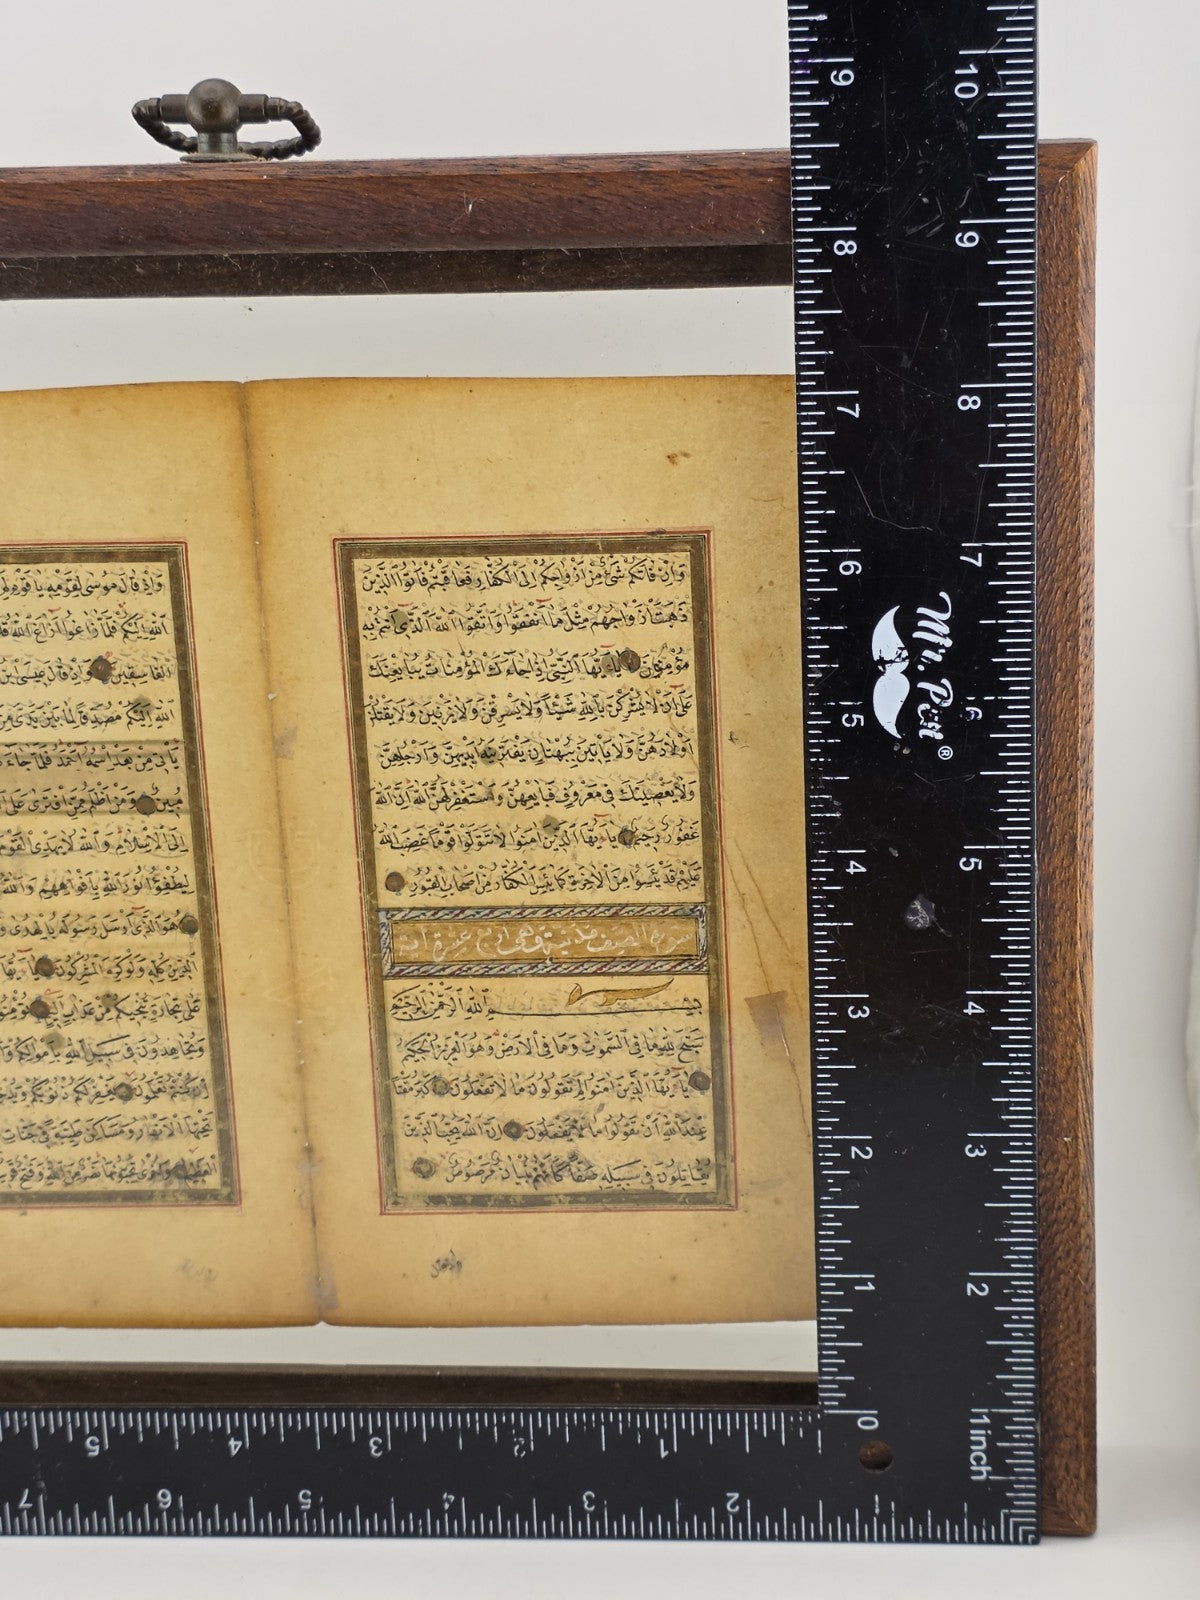 وَاِنْ فَاتَكُمْ شَىْءٌ مِنْ اَزْوَاجِكُمْ اِلَى الْكُفَّارِ فَعَاقَبْتُمْ فَاٰتُوا الَّذِينَ
ذَهَبَتْ اَزْوَاجُهُمْ مِثْلَ مَا اَنْفَقُوا وَاتَّقُوا اللّٰهَ الَّذِى اَنْتُمْ بِهِ
مُؤْمِنُونَ يَا اَيُّهَا النَّبِىُّ اِذَا جَاءَكَ الْمُؤْمِنَاتُ يُبَايِعْنَكَ
عَلٰى اَنْ لَا يُشْرِكْنَ بِاللّٰهِ شَيْئًا وَلَا يَسْرِقْنَ وَلَا يَزْنِينَ وَلَا يَقْتُلْنَ
اَوْلَادَهُنَّ وَلَا يَاْتِينَ بِبُهْتَانٍ يَفْتَرِينَهُ بَيْنَ اَيْدِيهِنَّ وَاَرْجُلِهِنَّ
وَلَا يَعْصِينَكَ فِى مَعْرُوفٍ فَبَايِعْهُنَّ وَاسْتَغْفِرْ لَهُنَّ اللّٰهَ اِنَّ اللّٰهَ
غَفُورٌ رَحِيمٌ يَا اَيُّهَا الَّذِينَ اٰمَنُوا لَا تَتَوَلَّوْا قَوْمًا غَضِبَ اللّٰهُ
عَلَيْهِمْ قَدْ يَئِسُوا مِنَ الْاٰخِرَةِ كَمَا يَئِسَ الْكُفَّارُ مِنْ اَصْحَابِ الْقُبُورِ
سورة الصف مدنية وهى اربع عشرة اية
بِسْمِ اللّٰهِ الرَّحْمٰنِ الرَّحِيمِ
سَبَّحَ لِلّٰهِ مَا فِى السَّمٰوَاتِ وَمَا فِى الْاَرْضِ وَهُوَ الْعَزِيزُ الْحَكِيمُ
يَا اَيُّهَا الَّذِينَ اٰمَنُوا لِمَ تَقُولُونَ مَا لَا تَفْعَلُونَ كَبُرَ مَقْتًا
عِنْدَ اللّٰهِ اَنْ تَقُولُوا مَا لَا تَفْعَلُونَ اِنَّ اللّٰهَ يُحِبُّ الَّذِينَ
يُقَاتِلُونَ فِى سَبِيلِهِ صَفًّا كَاَنَّهُمْ بُنْيَانٌ مَرْصُوصٌ
وَاِذْ قَالَ مُوسٰى لِقَوْمِهِ يَا قَوْمِ
اللّٰهِ اِلَيْكُمْ فَلَمَّا زَاغُوا اَزَاغَ اللّٰهُ
الْفَاسِقِينَ وَاِذْ قَالَ عِيسَى
اللّٰهِ اِلَيْكُمْ مُصَدِّقًا لِمَا بَيْنَ يَدَىَّ
يَاْتِى مِنْ بَعْدِى اسْمُهُ اَحْمَدُ فَلَمَّا جَاءَ
مُبِينٌ وَمَنْ اَظْلَمُ مِمَّنِ افْتَرٰى عَلَى
اِلَى الْاِسْلَامِ وَاللّٰهُ لَا يَهْدِى الْقَوْمَ
لِيُطْفِؤُا نُورَ اللّٰهِ بِاَفْوَاهِهِمْ وَاللّٰهُ
هُوَ الَّذِى اَرْسَلَ رَسُولَهُ بِالْهُدٰى
الدِّينِ كُلِّهِ وَلَوْ كَرِهَ الْمُشْرِكُونَ يَا اَيُّهَا
عَلٰى تِجَارَةٍ تُنْجِيكُمْ مِنْ عَذَابٍ اَلِيمٍ
وَتُجَاهِدُونَ فِى سَبِيلِ اللّٰهِ بِاَمْوَالِكُمْ
اِنْ كُنْتُمْ تَعْلَمُونَ يَغْفِرْ لَكُمْ ذُنُوبَكُمْ
تَحْتِهَا الْاَنْهَارُ وَمَسَاكِنَ طَيِّبَةً فِى جَنَّاتِ
الْعَظِيمُ وَاُخْرٰى تُحِبُّونَهَا نَصْرٌ مِنَ اللّٰهِ وَفَتْحٌ
9 8 7 6 5 4 3 2 1 0
10 9 8 7 6 5 4 3 2 1inch
Mr. Pen®
5 4 3 2 1
7 6 5 4 3 2 1